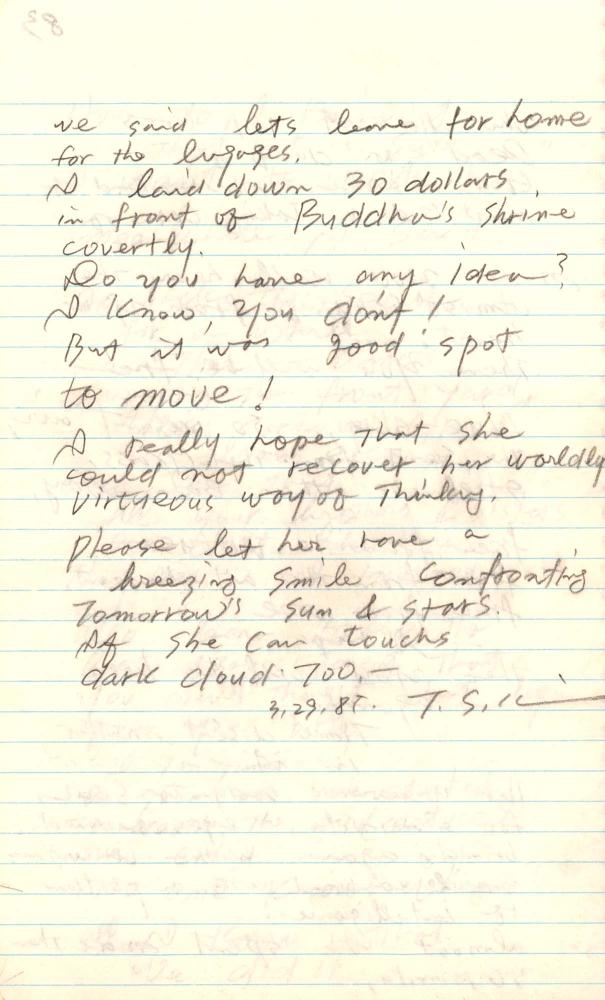 we said lets leave for home
for the lugages.
I laid down 30 dollars
in front of Buddha's Shrine
covertly.
Do you have any idea?
I know, you don't!
But it was good spot
to move!
I really hope that she
could not recover her worldly
virtueous way of Thinking.
please let her have a
breezing smile confronting
Tomorrow's sun & stars.
If she can touchs
dark cloud too,—
3.29.85. T. S.